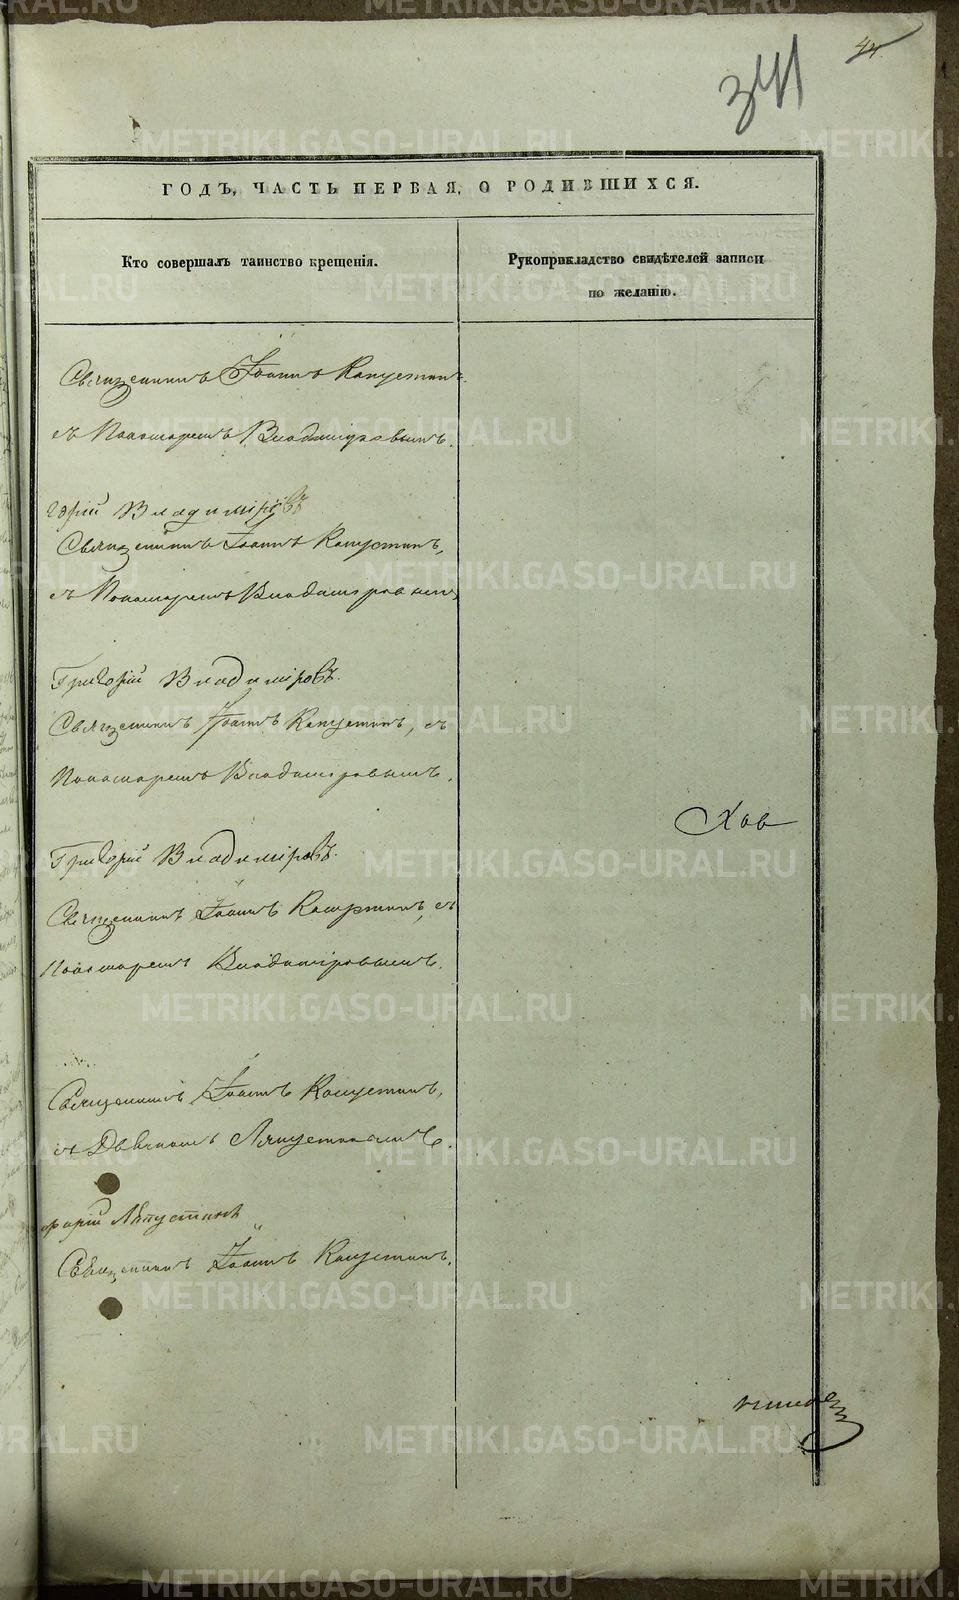 341
44
ГОДЪ, ЧАСТЬ ПЕРВАЯ, О РОДИВШИХСЯ.
Кто совершалъ таинство крещенія.
Рукоприкладство свидѣтелей записи
по желанію.
Священникъ Іоаннъ Капустинъ
съ Пономаремъ Владиміровымъ.
горій Владиміровъ
Священникъ Іоаннъ Капустинъ,
съ Пономаремъ Владиміровымъ
Григорій Владиміровъ.
Священникъ Іоаннъ Капустинъ, съ
Пономаремъ Владиміровымъ.
Григорій Владиміровъ.
Священникъ Іоаннъ Капустинъ, съ
Пономаремъ Владиміровымъ.
Священникъ Іоаннъ Капустинъ,
съ Дьячкомъ Ляпустинымъ.
Священникъ Іоаннъ Капустинъ.
METRIKI.GASO-URAL.RU